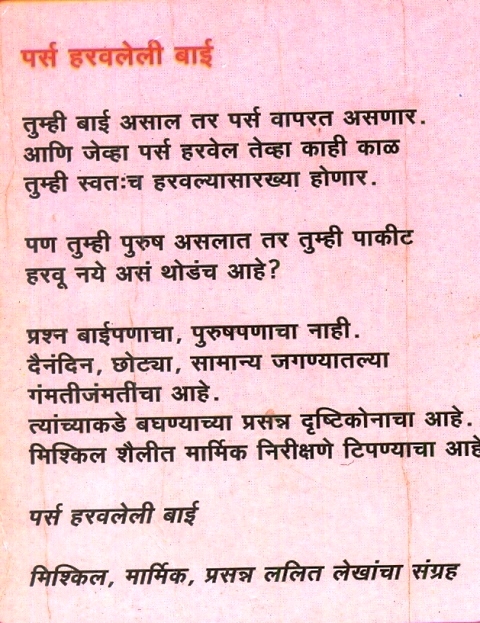 पर्स हरवलेली बाई
तुम्ही बाई असाल तर पर्स वापरत असणार.
आणि जेव्हा पर्स हरवेल तेव्हा काही काळ
तुम्ही स्वतःच हरवल्यासारख्या होणार.
पण तुम्ही पुरुष असलात तर तुम्ही पाकीट
हरवू नये असं थोडंच आहे?
प्रश्न बाईपणाचा, पुरुषपणाचा नाही.
दैनंदिन, छोट्या, सामान्य जगण्यातल्या
गंमतीजंमतींचा आहे.
त्यांच्याकडे बघण्याच्या प्रसन्न दृष्टिकोनाचा आहे.
मिश्किल शैलीत मार्मिक निरीक्षणे टिपण्याचा आहे
पर्स हरवलेली बाई
मिश्किल, मार्मिक, प्रसन्न ललित लेखांचा संग्रह